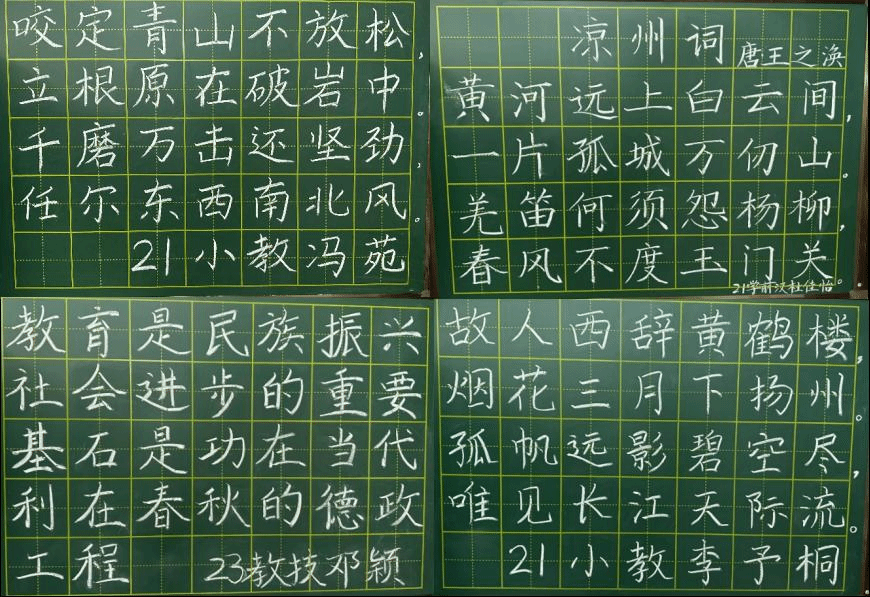 咬定青山不放松,
立根原在破岩中。
千磨万击还坚劲,
任尔东西南北风。
21小教冯苑
凉州词 唐王之涣
黄河远上白云间,
一片孤城万仞山。
羌笛何须怨杨柳,
春风不度玉门关。
21学前汉杜佳怡
教育是民族振兴
社会进步的重要
基石是功在当代
利在春秋的德政
工程 23教技邓颖
故人西辞黄鹤楼,
烟花三月下扬州。
孤帆远影碧空尽,
唯见长江天际流。
21小教李予桐